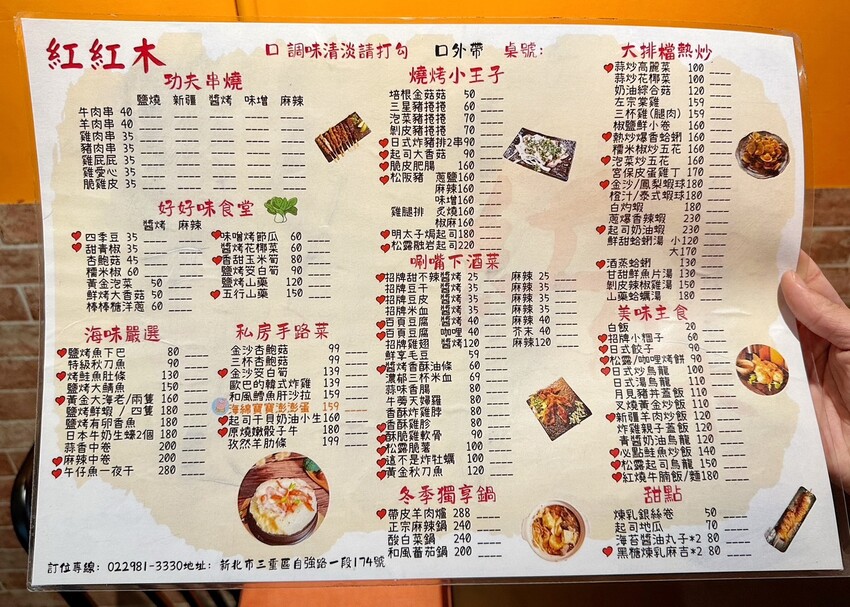 紅紅木
口 調味清淡請打勾 口外帶 桌號:
功夫串燒
鹽燒 新疆 醬烤 味增 麻辣
牛肉串 40
羊肉串 40
雞肉串 35
豬肉串 35
雞屁屁 35
雞愛心 35
脆雞皮 35
好好味食堂
醬烤 麻辣
四季豆 35
甜青椒 35
杏鮑菇 45
糯米椒 60
黃金泡菜 50
鮮烤大香菇 50
棒棒糖洋蔥 60
味增烤節瓜 60
醬烤花椰菜 60
香甜玉米筍 80
鹽烤筊白筍 90
鹽烤山藥 150
五行山藥 150
海味嚴選
鹽烤魚下巴 80
特級秋刀魚 90
烤鮭魚肚條 130
鹽烤大鯖魚 150
黃金大海老/兩隻 160
鹽烤鮮蝦 / 四隻 180
鹽烤有卵香魚 180
日本牛奶生蠔2個 180
蒜香中卷 200
麻辣中卷 200
午仔魚一夜干 280
私房手路菜
金沙杏鮑菇 99
三杯杏鮑菇 99
金沙筊白筍 139
歐巴的韓式炸雞 139
和風鱈魚肝沙拉 159
海綿寶寶澎澎蛋 159
起司干貝奶油小生 160
原燒嫩骰子牛 180
孜然羊肋條 199
燒烤小王子
培根金菇菇 50
三星豬捲捲 60
泡菜豬捲捲 70
剝皮豬捲捲 70
日式炸豬排2串 90
起司大香菇 90
脆皮肥腸 160
松阪豬 蔥鹽 160
麻辣 160
味增 160
雞腿排 炙燒 160
椒麻 160
明太子焗起司 180
松露融岩起司 220
唰嘴下酒菜
招牌甜不辣 醬烤 25 麻辣 25
招牌豆干 醬烤 35 麻辣 35
招牌豆皮 醬烤 35 麻辣 35
招牌米血 醬烤 35 麻辣 35
百頁豆腐 醬烤 40 麻辣 40
百頁豆腐 咖哩 40 芥末 40
招牌雞翅 醬烤 120 麻辣 120
鮮享毛豆 59
醬烤香酥油條 60
濃郁三杯米血 69
蒜味香腸 80
牛蒡天婦羅 80
香酥炸雞脖 80
香酥雞胗 80
酥脆雞軟骨 90
松露脆薯 100
這不是炸牡蠣 100
黃金秋刀魚 120
冬季獨享鍋
帶皮羊肉爐 288
正宗麻辣鍋 240
酸白菜鍋 240
和風蕃茄鍋 200
大排檔熱炒
蒜炒高麗菜 100
蒜炒花椰菜 100
奶油綜合菇 120
左宗棠雞 159
三杯雞(腿肉) 159
椒鹽鮮小卷 160
熱炒爆香蛤蜊 160
糯米椒炒五花 160
泡菜炒五花 160
宮保皮蛋雞丁 170
金沙/鳳梨蝦球 180
橙汁/泰式蝦球 180
白灼蝦 180
蔥爆香辣蝦 230
起司奶油蝦 230
鮮甜蛤蜊湯 小120
大170
酒蒸蛤蜊 130
甘甜鮮魚片湯 130
剝皮辣椒雞湯 150
山藥蛤蠣湯 180
美味主食
白飯 20
招牌小糰子 60
日式餃子 90
松露/咖哩烤餅 90
日式炒烏龍 100
日式湯烏龍 110
月見豬丼蓋飯 110
叉燒黃金炒飯 110
新疆羊肉炒飯 120
炸雞親子蓋飯 120
青醬奶油烏龍 120
必點鮭魚炒飯 140
松露起司烏龍 150
紅燒牛腩飯/麵 180
甜點
煉乳銀絲卷 50
起司地瓜 70
海苔醬油丸子*2 80
黑糖煉乳麻吉*2 80
訂位專線: 022981-3330地址: 新北市三重區自強路一段174號